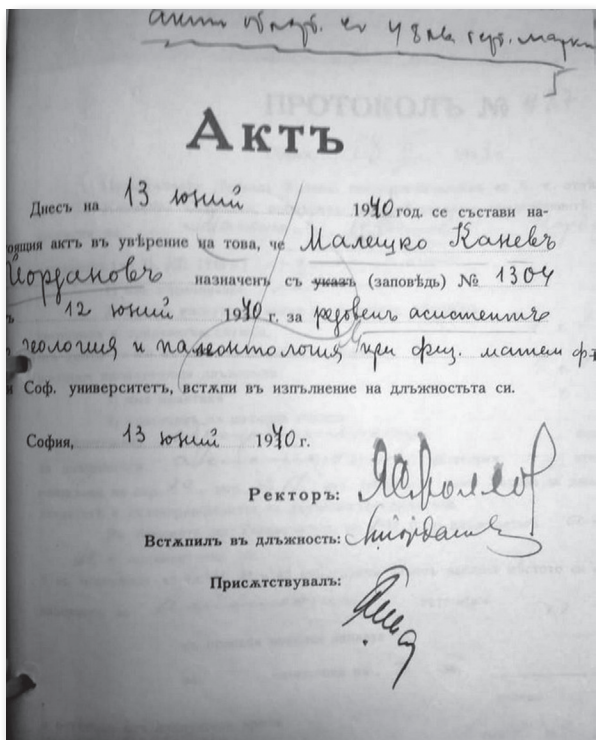 актъ обгерб. съ 48 лв. герб. марки
Актъ
Днесъ на 13 юний 1940 год. се състави на-
оящия актъ въ увѣрение на това, че Малецко Каневъ
Йордановъ назначенъ съ указъ (заповѣдь) № 1304
12 юний 1940 г. за редовенъ асистентъ
геология и палеонтология при физ. матем ф-
Соф. университетъ, встѫпи въ изпълнение на длъжностьта си.
София, 13 юний 1940 г.
Ректоръ:
Встѫпилъ въ длъжность: МЙорданов
Присѫтствувалъ:
ПРОТОКОЛЪ №